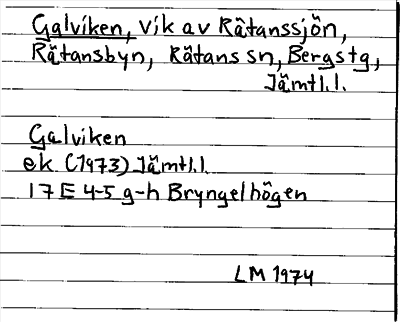 Galviken, vik av Rätanssjön,
Rätansbyn, Rätans sn, Bergs tg,
Jämtl.l.
Galviken
ek (1973) Jämtl.l
17 E 4-5 g-h Bryngelhögen
LM 1974